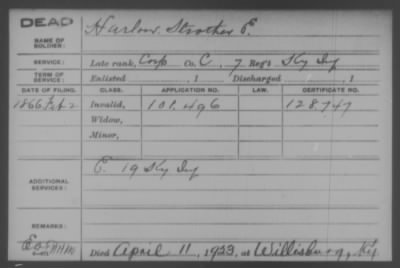 DEAD
NAME OF SOLDIER: Harlow, Strother E.
SERVICE: Late rank, Corp Co. C, 7 Reg't Ky Inf
TERM OF SERVICE: Enlisted , 1 Discharged , 1
DATE OF FILING. CLASS. APPLICATION NO. LAW. CERTIFICATE NO.
1866 Feb 2 Invalid, 101.496 128.747
Widow,
Minor,
ADDITIONAL SERVICES: E. 19 Ky Inf
REMARKS:
Died April 11, 1923, at Willisburg, Ky